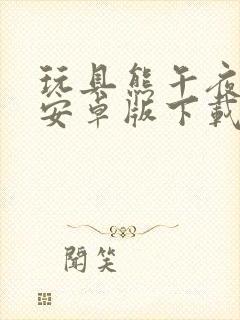 玩具熊午夜
安卓版下载
闻笑